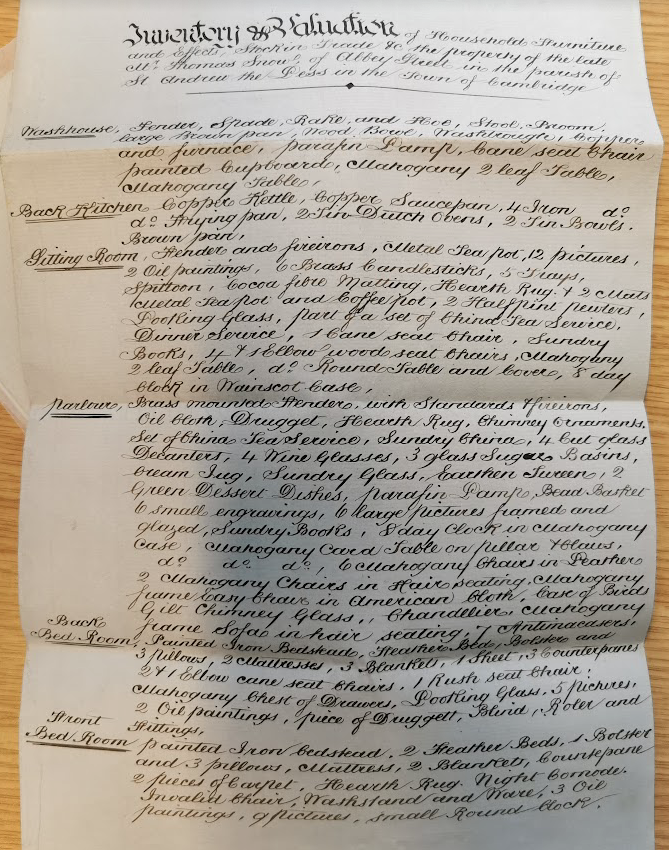 Inventory & Valuation of Household Furniture
and Effects, Stock in Trade &c the property of the late
Mr. Thomas Snow, of Abbey Street in the parish of
St Andrew the Less in the Town of Cambridge
Washhouse, Fender, Spade, Rake and Hoe, Stool, Broom,
large Brown pan, Wood Bowl, Washtroughs, Copper
and furnace, parafin Lamp, Cane seat Chair
painted Cupboard, Mahogany 2 leaf Table,
Mahogany Table,
Back Kitchen Copper Kettle, Copper Saucepan, 4 Iron do
do Frying pan, 2 Tin Dutch Ovens, 2 Tin Bowls,
Brown pan,
Sitting Room, Fender and fireirons, Metal Tea pot, 12 pictures,
2 Oil paintings, 6 Brass Candlesticks, 5 Trays,
Spittoon, Cocoa fibre Matting, Hearth Rug & 2 Mats
Metal Tea pot and Coffee pot, 2 Half pint pewters,
Looking Glass, part of a set of China Tea Service,
Dinner Service, 1 Cane seat Chair, Sundry
Books, 4 & 1 Elbow wood seat Chairs, Mahogany
2 leaf Table, do Round Table and Cover, 8 day
Clock in Wainscot Case,
Parlour, Brass mounted Fender, with Standards & fireirons,
Oil Cloth, Drugget, Hearth Rug, Chimney Ornaments,
Set of China Tea Service, Sundry China, 4 cut glass
Decanters, 4 Wine Glasses, 3 glass Sugar Basins,
Cream Jug, Sundry Glass, Earthen Tureen, 2
Green Dessert Dishes, parafin Lamp, Bead Basket
6 small engravings, 6 large pictures framed and
glazed, Sundry Books, 8 day Clock in Mahogany
Case, Mahogany Card Table on pillar & Claws,
do do do, 6 Mahogany Chairs in Leather
2 Mahogany Chairs in Hair seating, Mahogany
frame Easy Chair in American Cloth, Case of Birds
Gilt Chimney Glass, Chandelier, Mahogany
frame Sofa in hair seating, 7 Antimacassers,
Back
Bed Room, Painted Iron Bedstead, Feather Bed, Bolster and
3 pillows, 2 Mattresses, 3 Blankets, 1 Sheet, 3 Counterpanes
2 & 1 Elbow cane seat Chairs, 1 Rush seat Chair,
Mahogany Chest of Drawers, Looking Glass, 5 pictures,
2 Oil paintings, piece of Druggett, Blind, Roler and
Fittings,
Front
Bed Room painted Iron bedstead, 2 Feather Beds, 1 Bolster
and 3 pillows, Mattress, 2 Blankets, Counterpane
2 pieces of Carpet, Hearth Rug, Night Comode,
Invalid Chair, Washstand and Ware, 3 Oil
paintings, 9 pictures, small Round Clock.